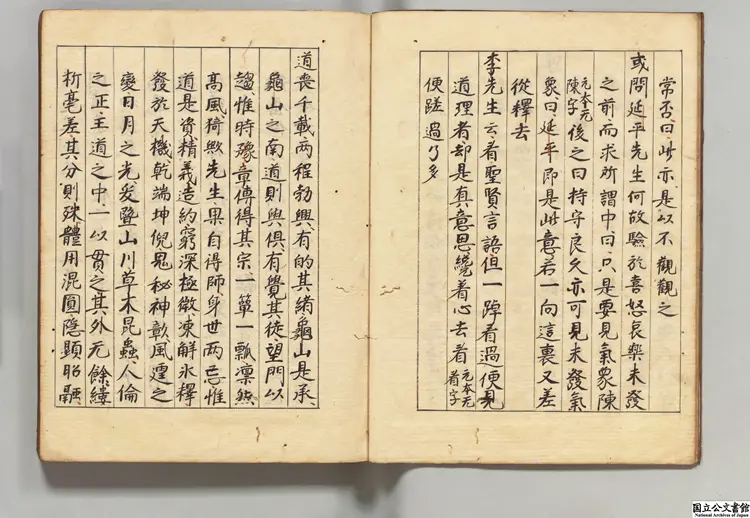 常否曰此亦是以不觀觀之
或問延平先生何故驗於喜怒哀樂未發
之前而求所謂中曰只是要見氣象陳
元本无
陳字
後之曰持守良久亦可見未發氣
象曰延平即是此意若一向這裏又差
從釋去
李先生云看聖賢言語但一踔看過便見
道理者却是真意思纔着心去看
元本无
看字
便蹉過了多
道喪千載两程勃興有的其緒龜山是承
龜山之南道則與俱有覺其徒望門以
趨惟時豫章傳得其宗一簞一瓢凛然
高風猗歟先生果自得師身世两忘惟
道是資精義造約窮深極微凍解氷釋
發於天機乾端坤倪鬼秘神彰風霆之
變日月之光爰曁山川草木昆蟲人倫
之正王道之中一以貫之其外无餘縷
析毫差其分則殊體用混圓隠顕昭融
国立公文書館
National Archives of Japan